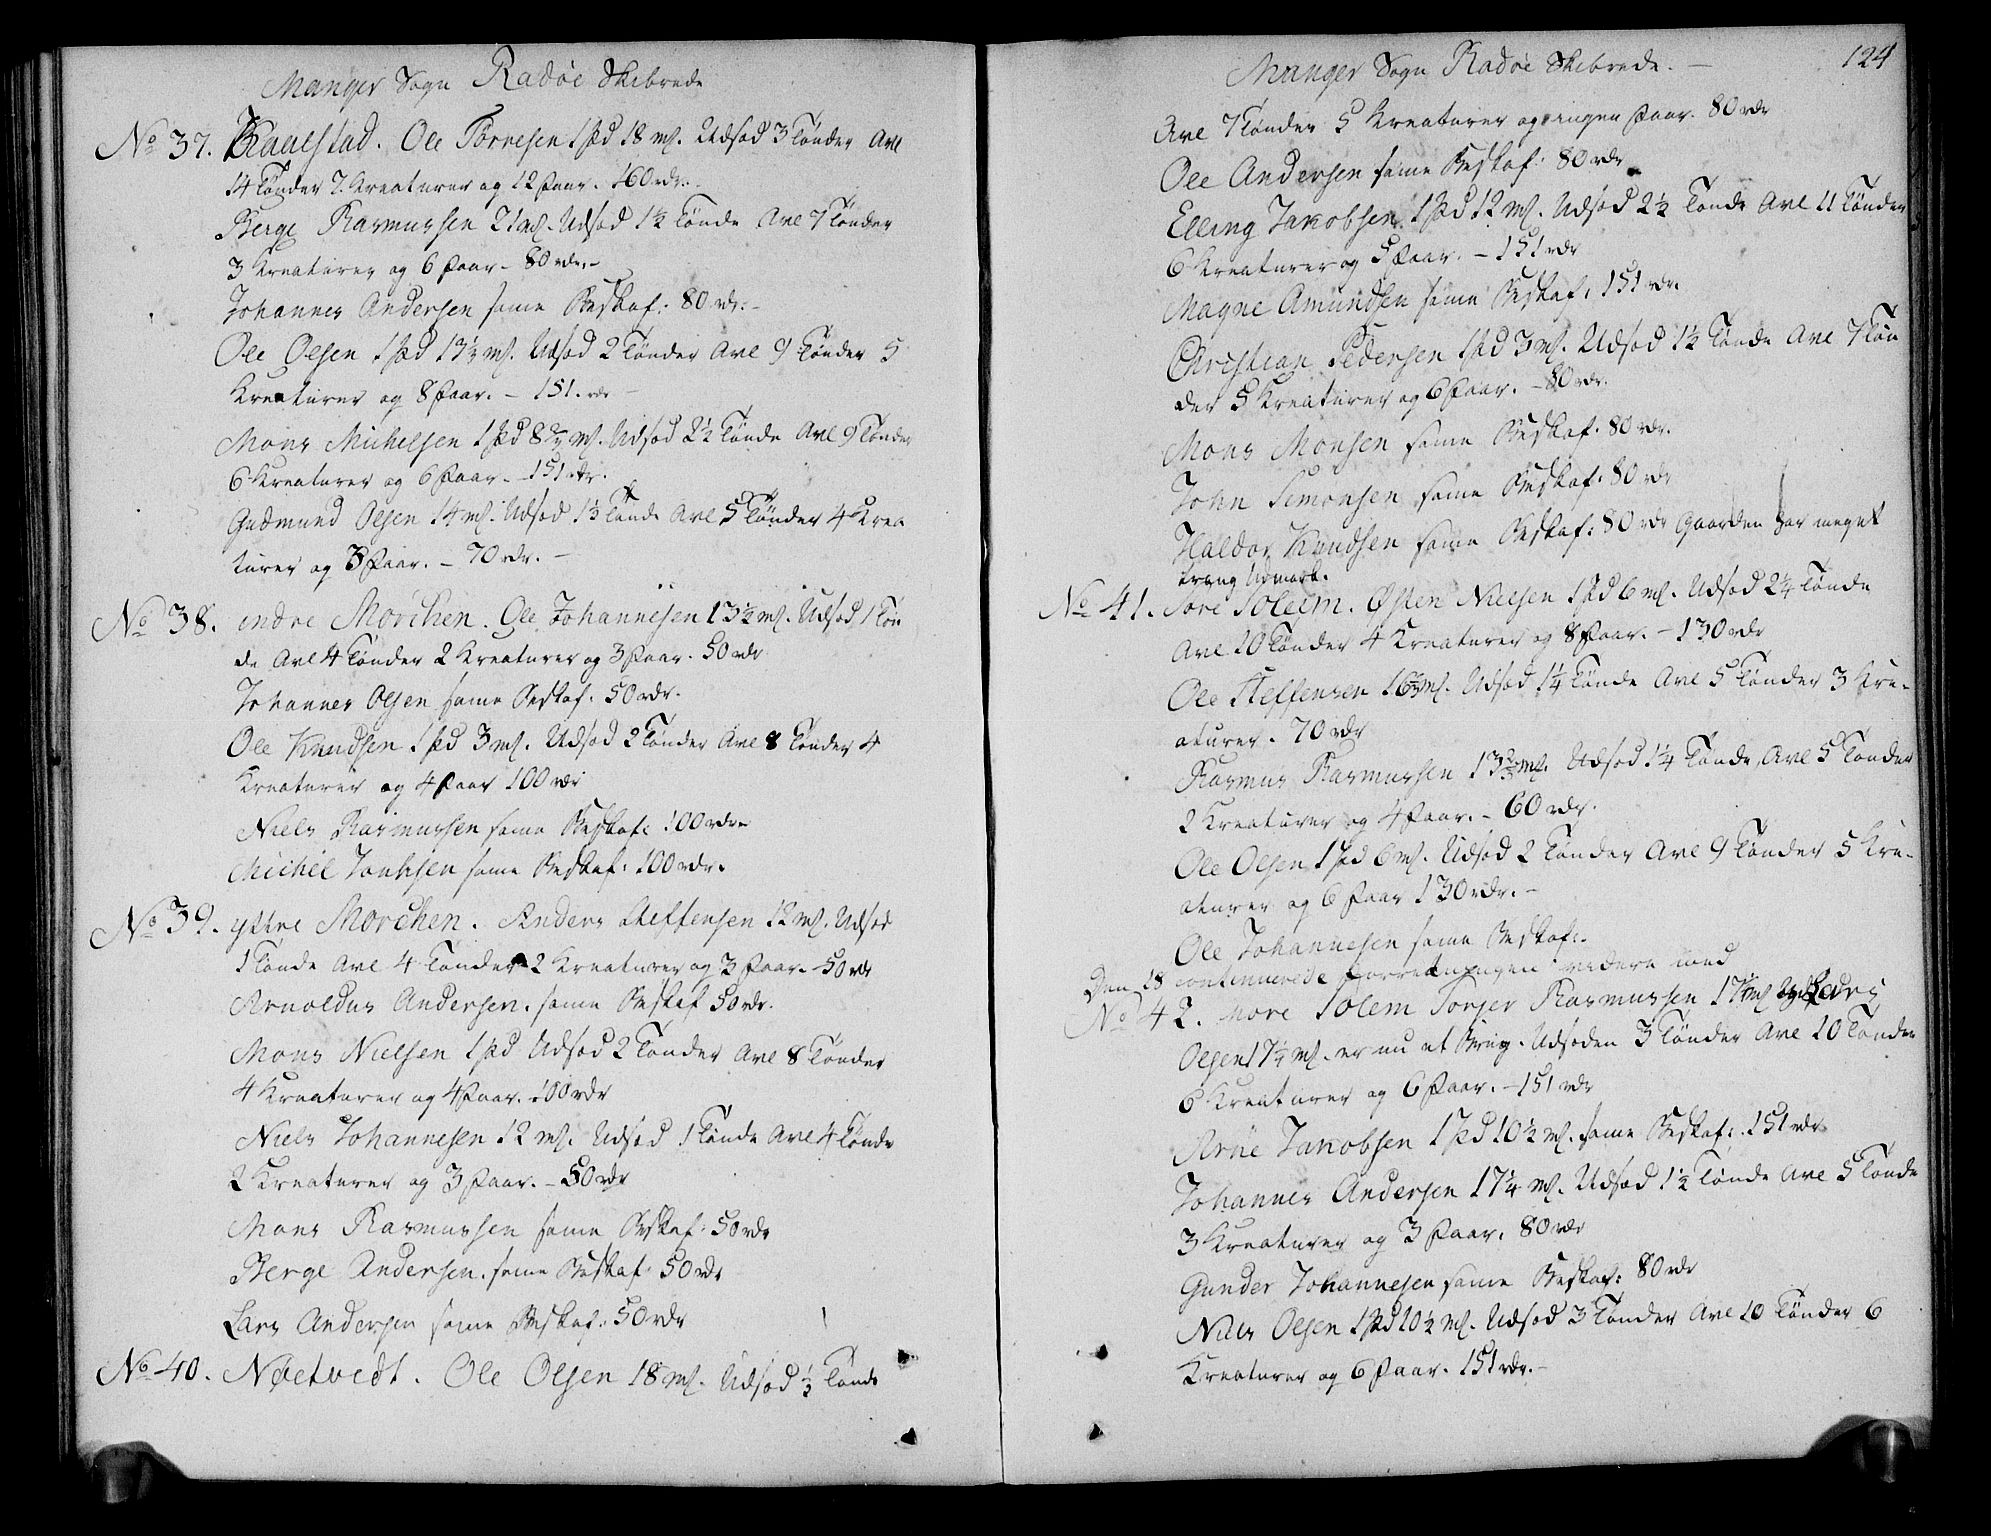 Manger Sogn Radøe Skibrede
No 37. Kaalstad. Ole Torresen 1 pd 18 mrk. Udsød 3 Tønder Avl
14 Tønder 7 Kreaturer og 12 Faar. 160 rdr.
Berge Rasmussen 21 mrk. Udsød 1½ Tønde Avl 7 Tønder
3 Kreaturer og 6 Faar - 80 rdr. -
Johannes Andersen same Beskaf: 80 rdr. -
Ole Olsen 1 pd 13½ mrk. Udsød 2 Tønder Avl 9 Tønder 5
Kreaturer og 8 Faar. - 151. rdr
Mons Michelsen 1 pd 8 mrk. Udsød 2½ Tønde Avl 9 Tønder
6 Kreaturer og 6 Faar. - 151 rdr.
Gudmund Olsen 14 mrk. Udsød 1½ Tønde Avl 5 Tønder 4 Krea
turer og 3 Faar. - 70 rdr. -
No 38. indre Mørchen. Ole Johannesen 13½ mrk. Udsød 1 Tøn
de Avl 4 Tønder 2 Kreaturer og 3 Faar. 50 rdr
Johannes Olsen same Beskaf. 50 rdr.
Ole Knudsen 1 pd 3 mrk. Udsød 2 Tønder Avl 8 Tønder 4
Kreaturer og 4 Faar 100 rdr
Niels Rasmussen same Beskaf: 100 rdr.
Michel same Beskaf: 100 rdr.
No 39. yttre Mørchen. Anders Steffensen 12 mrk. Udsød
1 Tønde Avl 4 Tønder 2 Kreaturer og 3 Faar. 50 rdr
Arnoldus Andersen. same Beskaf 50 rdr.
Mons Nielsen 1 pd Udsød 2 Tønder Avl 8 Tønder
4 Kreaturer og 4 Faar. 100 rdr
Niels Johannesen 12 mrk. Udsød 1 Tønde Avl 4 Tønde
2 Kreaturer og 3 Faar. - 50 rdr
Mons Rasmussen same Beskaf: 50 rdr
Berge Andersen. same Beskaf 50 rdr
Lars Andersen same Beskaf: 50 rdr
No 40. Nøetvedt. Ole Olsen 18 mrk. Udsød Tønde
Manger Sogn Radøe Skibrede. - 124
Avl 7 Tønder 5 Kreaturer og ingen Faar. 80 rdr
Ole Andersen same Beskaf: 80 rdr
Elling Jakobsen 1 pd 12 mrk. Udsød 2½ Tønde Avl 11 Tønder
6 Kreaturer og 5 Faar. - 151 rdr
Magne Amundsen same Beskaf: 151 rdr.
Christian Pedersen 1 pd 3 mrk. Udsød 1½ Tønde Avl 7 Tøn
der 5 Kreaturer og 6 Faar. - 80 rdr.
Mons Monsen same Beskaf. 80 rdr.
John Simonsen same Beskaf. 80 rdr
Haldor Knudsen same Beskaf: 80 rdr Gaarden har meget
trang Udmark.
No 41. Søre Soleim. Østen Nielsen 1 pd 6 mrk. Udsød 2½ Tønde
Avl 10 Tønder 4 Kreaturer og 8 Faar. - 130 rdr
Ole Steffensen 16 mrk. Udsød 1¼ Tønde Avl 5 Tønder 3 Kre-
aturer. 70 rdr
Rasmus Rasmussen 13 mrk. Udsød 1¼ Tønde, Avl 5 Tønder
2 Kreaturer og 4 Faar. - 60 rdr.
Ole Olsen 1 pd 6 mrk. Udsød 2 Tønder Avl 9 Tønder 5 Kre-
aturer og 6 Faar 130 rdr. -
Ole Johannesen same Beskaf:
Den 18 continuerede Forretningen videre med
No 42. Solem Torger Rasmussen 17¼ mrk og Lars
Olsen 17¼ mrk. er nu et Brug. Udsøden 3 Tønder Avl 10 Tønder
6 Kreaturer og 6 Faar. - 151 rdr
Arne Jakobsen 1 pd 10½ mrk. same Beskaf: 151 rdr
Johannes Andersen 17¼ mrk. Udsød 1½ Tønde Avl 5 Tønde
3 Kreaturer og 3 Faar. 80 rdr
Gunder Johannesen same Beskaf: 80 rdr
Niels Olsen 1 pd 10½ mrk. Udsød 3 Tønder Avl 10 Tønder 6
Kreaturer og 6 Faar. 151 rdr. -